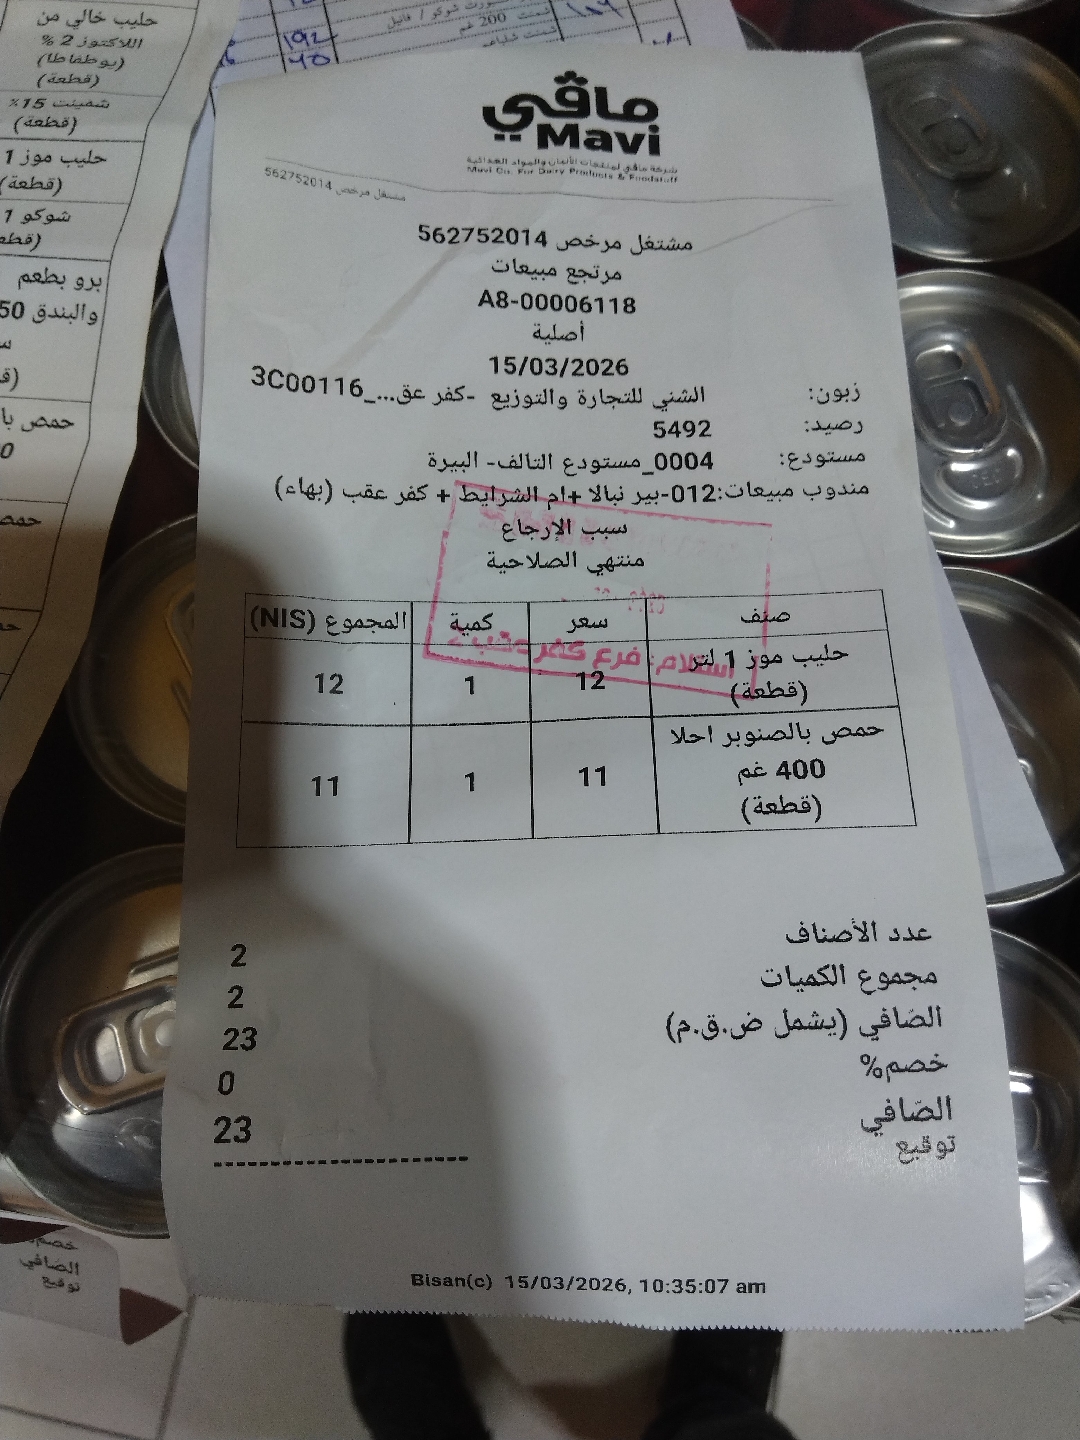 ماڤي
Mavi
شركة ماڤي لمنتجات الألبان والمواد الغذائية
Mavi Co. For Dairy Products & Foodstuff
مشتغل مرخص 562752014
مشتغل مرخص 562752014
مرتجع مبيعات
A8-00006118
أصلية
15/03/2026
زبون: الشني للتجارة والتوزيع -كفر عق..._3C00116
رصيد: 5492
مستودع: 0004_مستودع التالف- البيرة
مندوب مبيعات:012-بير نبالا +ام الشرايط + كفر عقب (بهاء)
سبب الإرجاع
منتهي الصلاحية
صنف سعر كمية المجموع (NIS)
حليب موز 1 لتر (قطعة) 12 1 12
حمص بالصنوبر احلا 400 غم (قطعة) 11 1 11
استلام: فرع كفر عقب
عدد الأصناف 2
مجموع الكميات 2
الصّافي (يشمل ض.ق.م) 23
خصم% 0
الصّافي 23
توقيع
Bisan(c) 15/03/2026, 10:35:07 am
حليب خالي من
اللاكتوز 2 %
(يوطفاطا)
(قطعة)
شمينت 15%
(قطعة)
حليب موز 1
(قطعة)
شوكو 1
برو بطعم
والبندق
حمص
192
40
200 غم
خصم
الصّافي
توقيع